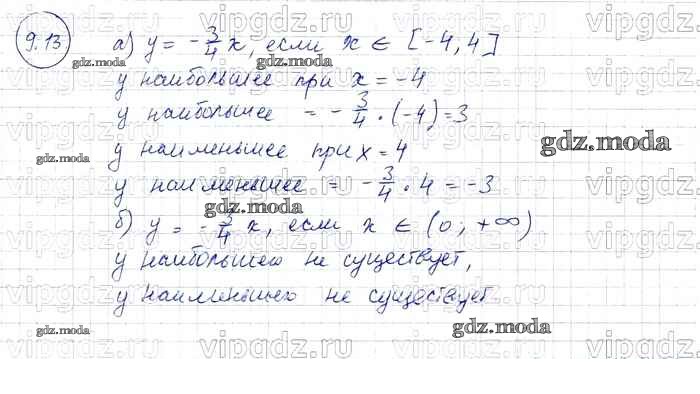 9.13 а) y = -3/4 x, если x ∈ [-4, 4]
y наибольшее при x = -4
y наибольшее = -3/4 · (-4) = 3
y наименьшее при x = 4
y наименьшее = -3/4 · 4 = -3
б) y = -3/4 x, если x ∈ (0; +∞)
y наибольшего не существует,
y наименьшего не существует
vipgdz.ru
gdz.moda